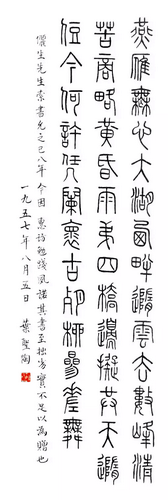 燕雁無心大湖西畔隨雲去數峰清
苦商略黃昏雨弟四橋邊擬共天隨
住今何許凭闌懷古殘柳參差舞
生先生索書允之已八年今因惠訪勉踐夙諾其書至拙劣實不足以為贈也
一九五七年八月五日 葉聖陶